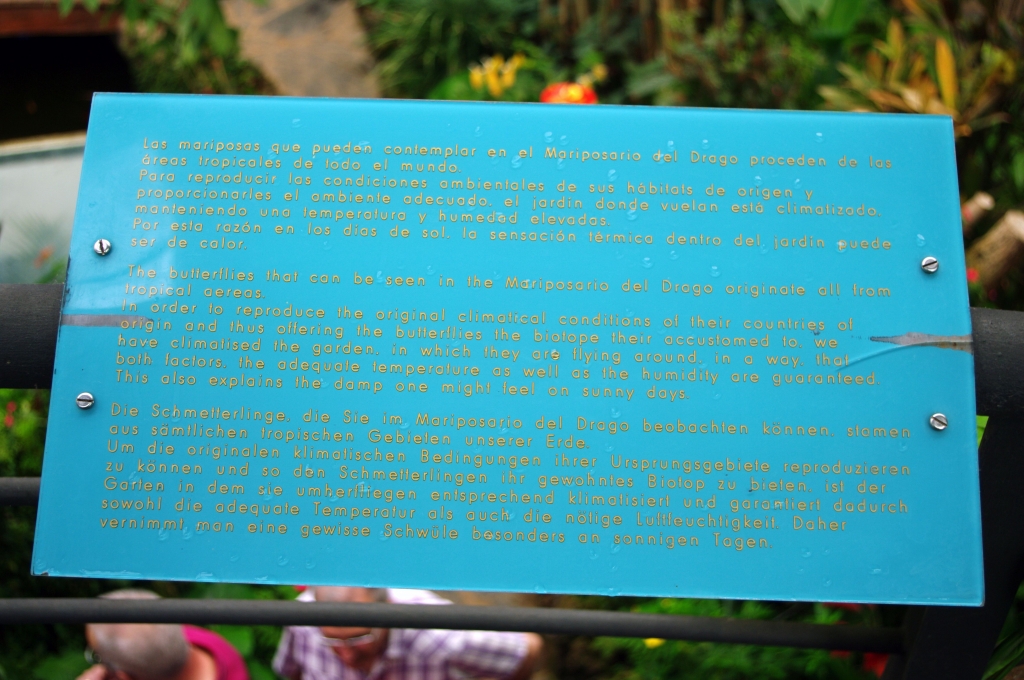 Las mariposas que pueden contemplar en el Mariposario del Drago proceden de las
áreas tropicales de todo el mundo.
Para reproducir las condiciones ambientales de sus hábitats de origen y
proporcionarles el ambiente adecuado, el jardín donde vuelan está climatizado,
manteniendo una temperatura y humedad elevadas.
Por esta razón en los días de sol, la sensación térmica dentro del jardín puede
ser de calor.
The butterflies that can be seen in the Mariposario del Drago originate all from
tropical aereas.
In order to reproduce the original climatical conditions of their countries of
origin and thus offering the butterflies the biotope their accustomed to, we
have climatised the garden, in which they are flying around, in a way, that
both factors, the adequate temperature as well as the humidity are guaranteed.
This also explains the damp one might feel on sunny days.
Die Schmetterlinge, die Sie im Mariposario del Drago beobachten können, stamen
aus sämtlichen tropischen Gebieten unserer Erde.
Um die originalen klimatischen Bedingungen ihrer Ursprungsgebiete reproduzieren
zu können und so den Schmetterlingen ihr gewohntes Biotop zu bieten, ist der
Garten in dem sie umherfliegen entsprechend klimatisiert und garantiert dadurch
sowohl die adequate Temperatur als auch die nötige Luftfeuchtigkeit. Daher
vernimmt man eine gewisse Schwüle besonders an sonnigen Tagen.